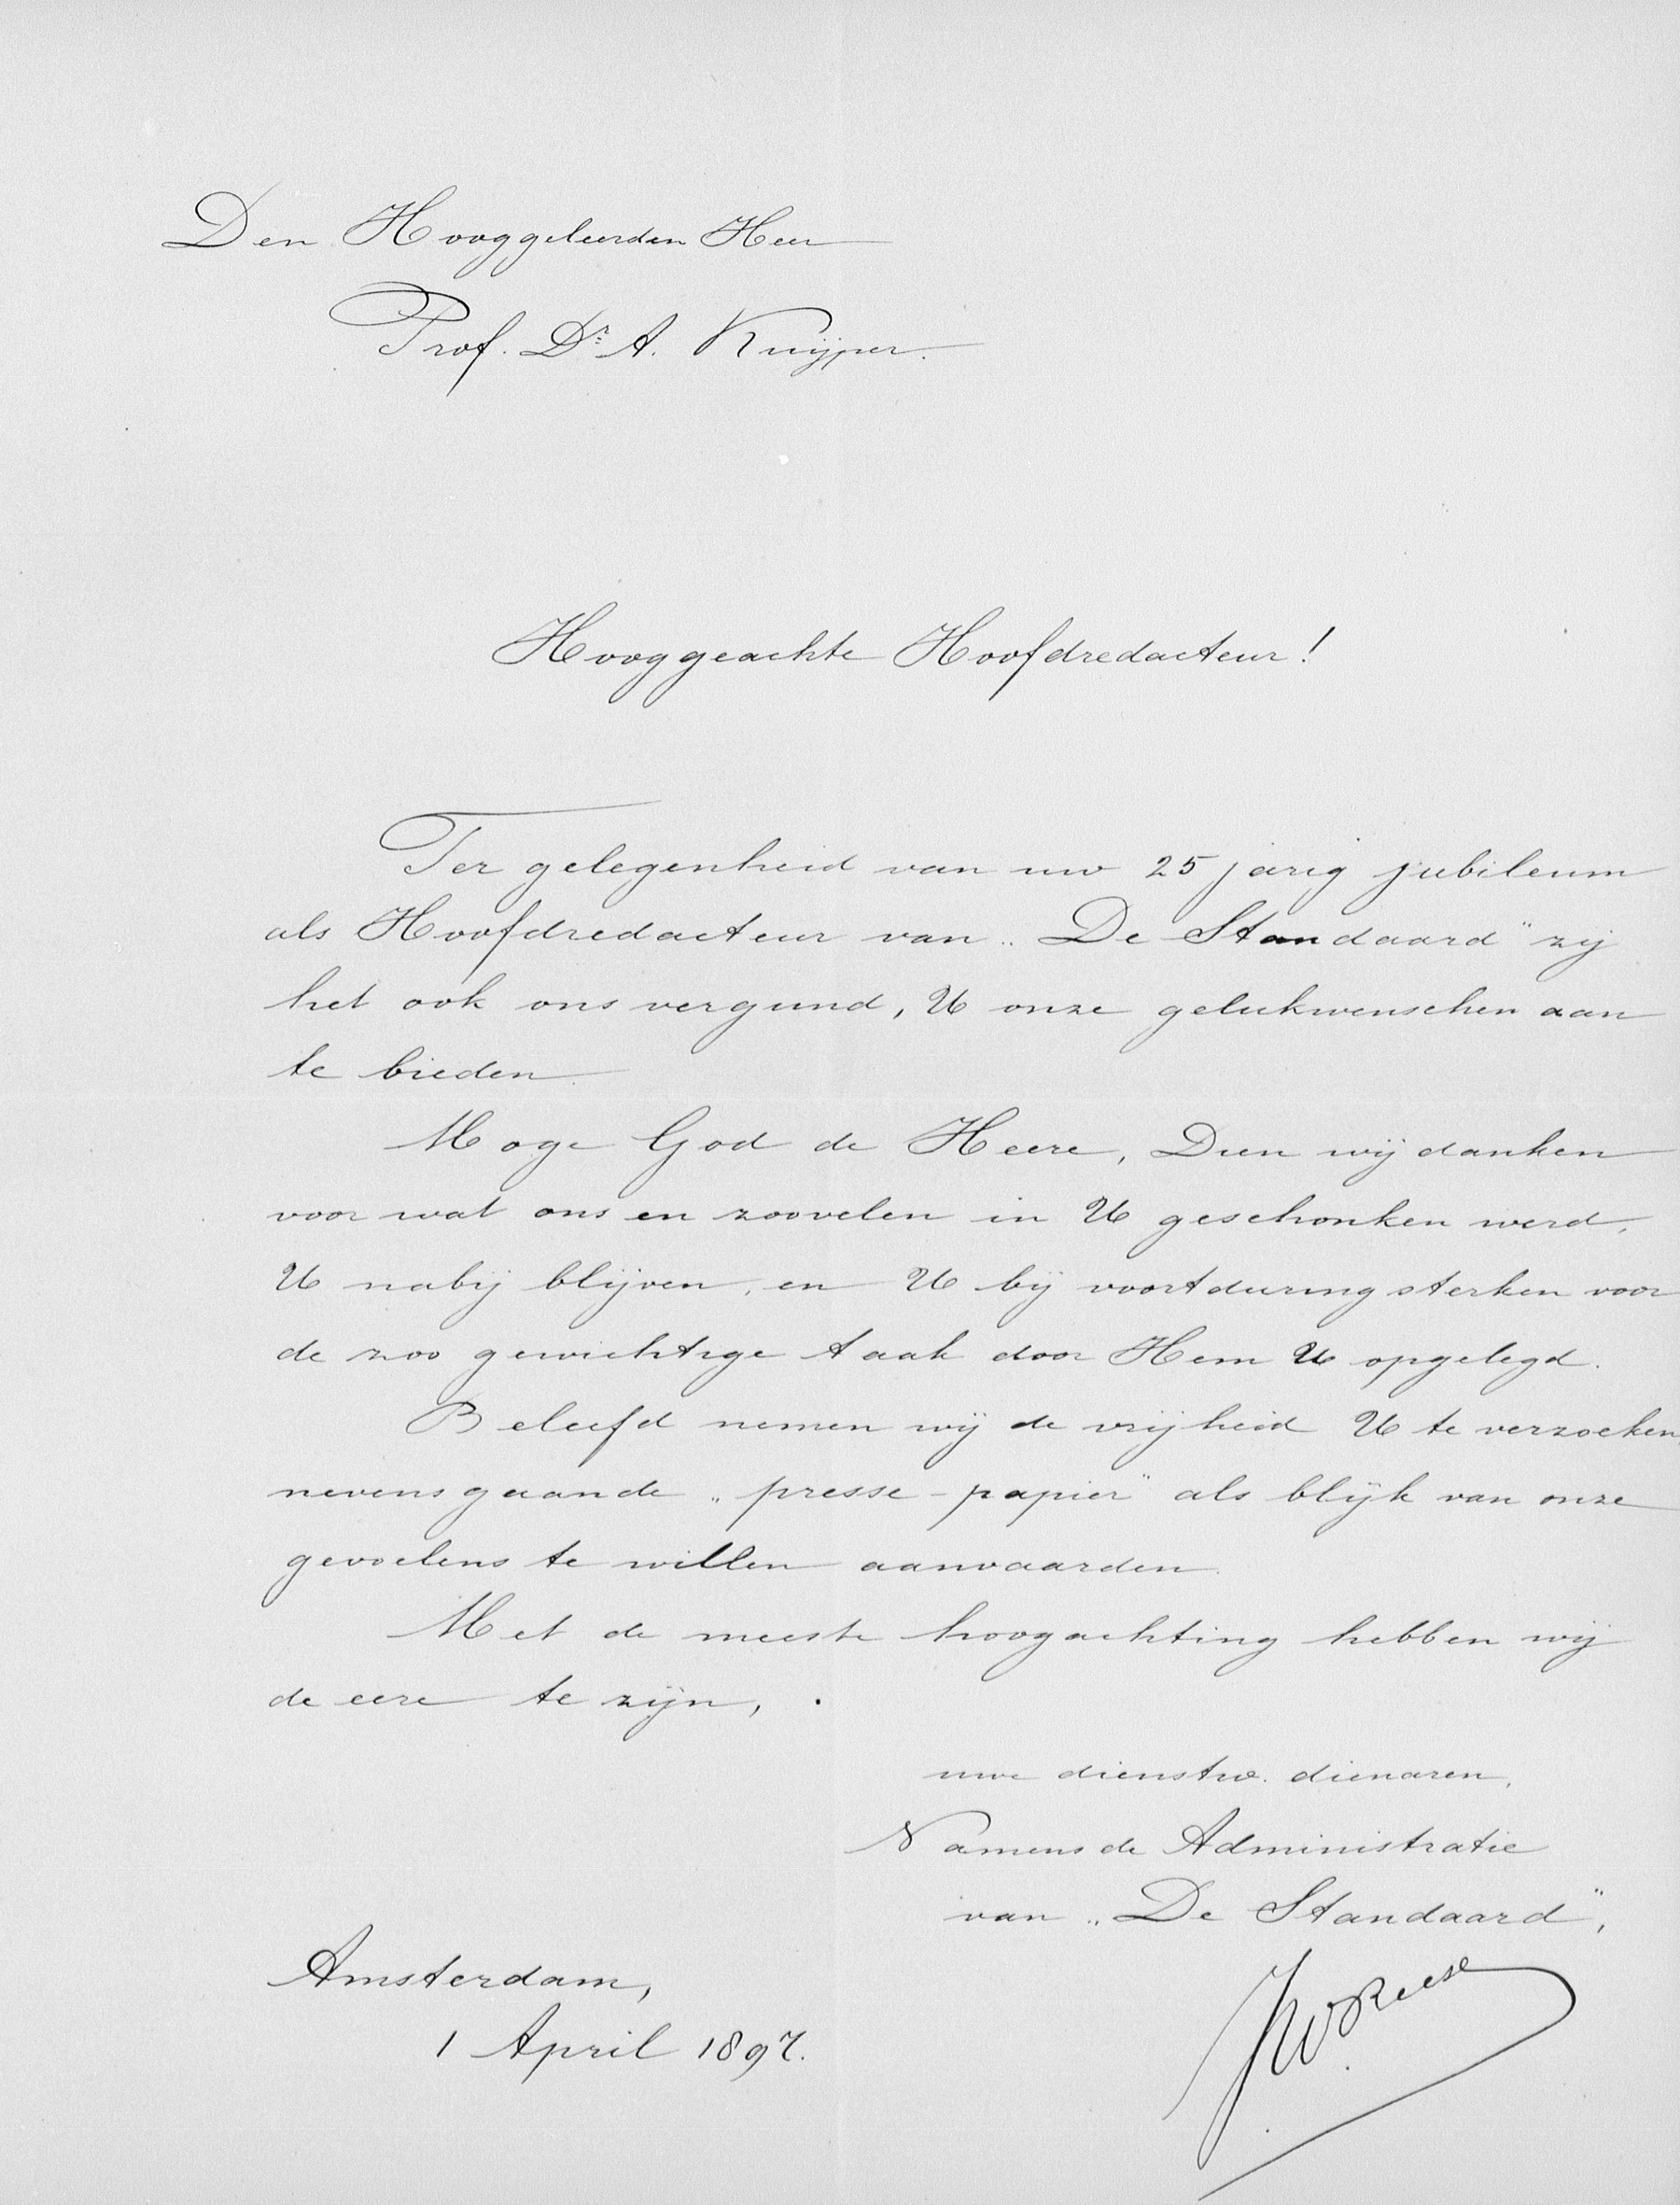 Den Hooggeleerden Heer
Prof. Dr. A. Kuijper.
Hooggeachte Hoofdredacteur!
Ter gelegenheid van uw 25 jarig jubileum
als Hoofdredacteur van „De Standaard" zij
het ook ons vergund, U onze gelukwenschen aan
te bieden.
Moge God de Heere, Dien wij danken
voor wat ons en zoovelen in U geschonken werd,
U nabij blijven, en U bij voortduring sterken voor
de zoo gewichtige taak door Hem U opgelegd.
Beleefd nemen wij de vrijheid U te verzoeken
nevensgaande „presse-papier" als blijk van onze
gevoelens te willen aanvaarden.
Met de meeste hoogachting hebben wij
de eere te zijn,
uwe dienstw. dienaren,
Namens de Administratie
van „De Standaard",
Amsterdam,
1 April 1897.